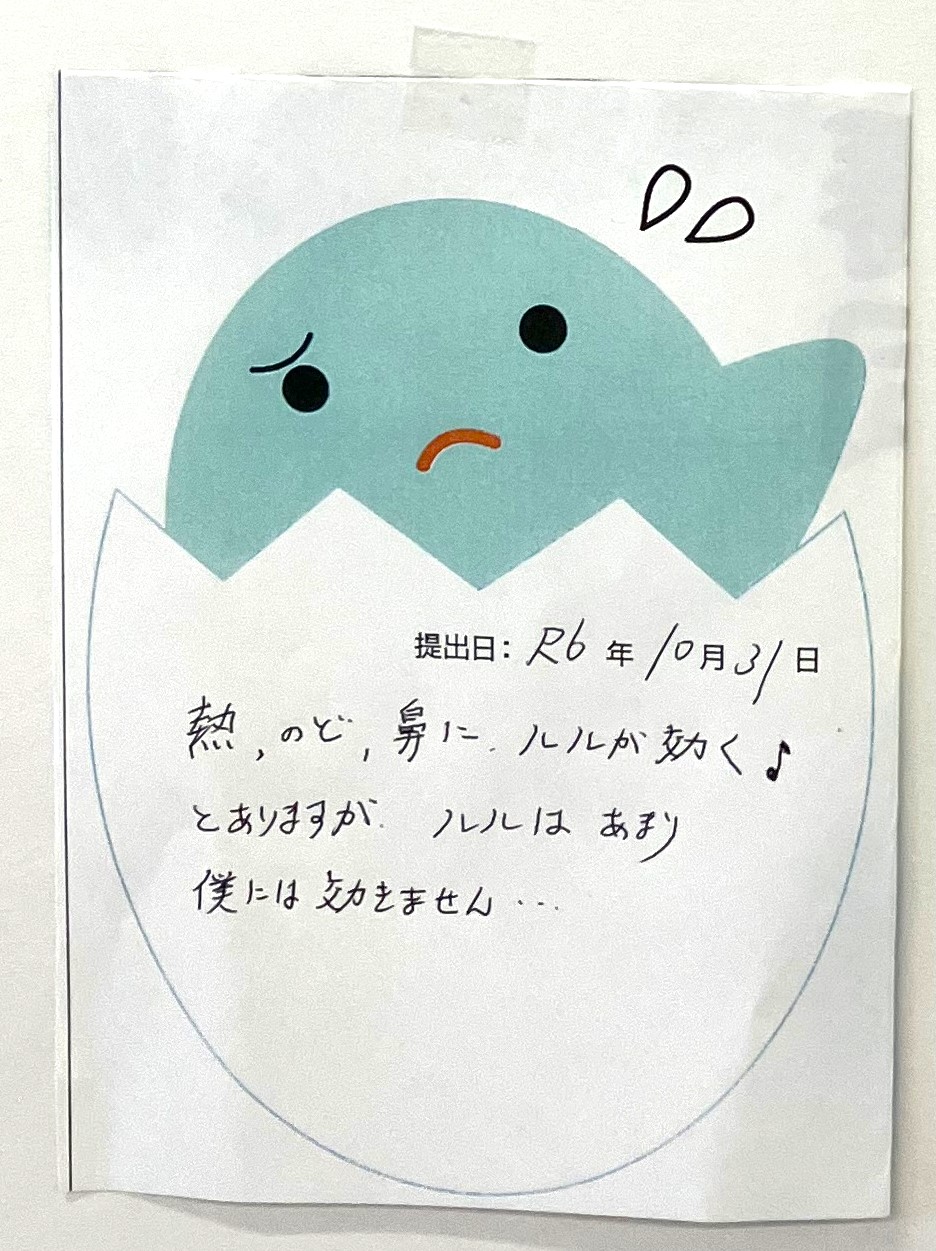 提出日: R6年10月31日
熱,のど,鼻に.ルルが効く♪
とありますが.ルルはあまり
僕には効きません…